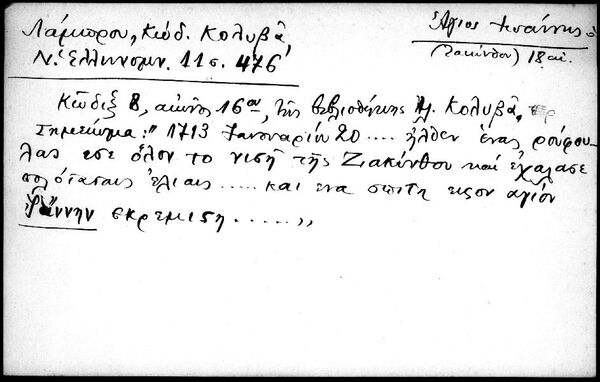 Λάμπρου, Κώδ. Κολυβᾶ,
Ν. Ἑλληνομν. 11 σ. 476
Ἅγιος Ἰωάννης ὁ
(Ζακύνθου) 18 αἰ.
Κῶδιξ 8, αἰῶνος 16ου, τῆς βιβλιοθήκης Κολυβᾶ,
Σημείωμα: " 1713 Ἰανουαρίου 20 .... ἦλθεν ἕνας ρούφου-
λας εσε ὅλον το νισή τῆς Ζιακύνθου καὶ ἐχάλασε
πολότατες ἐλιαις ..... και ενα σπιτη εισον αγιόν
Ἰωάννην εκρεμιση ..... "